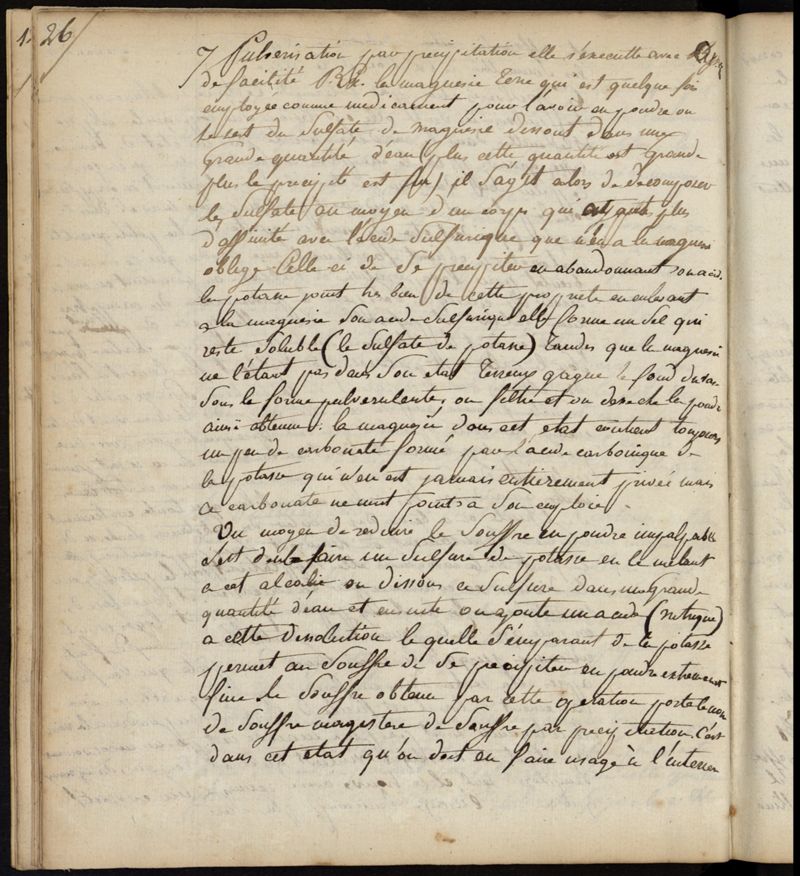 26
7 Pulverisation par precipitation elle s'execute avec
de facilité P. Ex. la magnesie terre qui est quelque fois
employée comme medicament pour l'avoir en poudre on
se sert du Sulfate de magnesie dissout dans une
Grande quantité d'eau (plus cette quantité est grande
plus le precipité est fin) il s'agit alors de decomposer
le Sulfate au moyen d'un corps qui ayant plus
d'affinité avec l'acide Sulfurique que n'en a la magnesie
oblige Celle ci de se precipiter en abandonnant son acide.
la potasse jouit tres bien de cette propriete en enlevant
a la magnesie son acide Sulfurique elle forme un Sel qui
reste Soluble (le Sulfate de potasse) tandis que la magnesie
ne l'étant pas dans Son etat terreux gagne le fond du vase
Sous la forme pulverulente, on filtre et on desseche la poudre
ainsi obtenue : la magnesie dans cet etat contient toujours
un peu de carbonate formé par l'acide carbonique de
la potasse qui n'en est jamais entierement privée mais
ce carbonate ne nuit point a Son emploie.
Un moyen de reduire le Souffre en poudre impalpable
c'est de faire un Sulfure de potasse en le mélant
a cet alcalie on dissous ce Sulfure dans une Grande
quantité d'eau et ensuite on ajoute un acide (nitrique)
a cette dissolution le quelle S'emparant de la potasse
permet au Souffre de Se precipiter en poudre extremement
fine le Souffre obtenu par cette operation porte le nom
de Souffre magistere de Souffre par precipitation. C'est
dans cet etat qu'on doit en faire usage à l'interieur